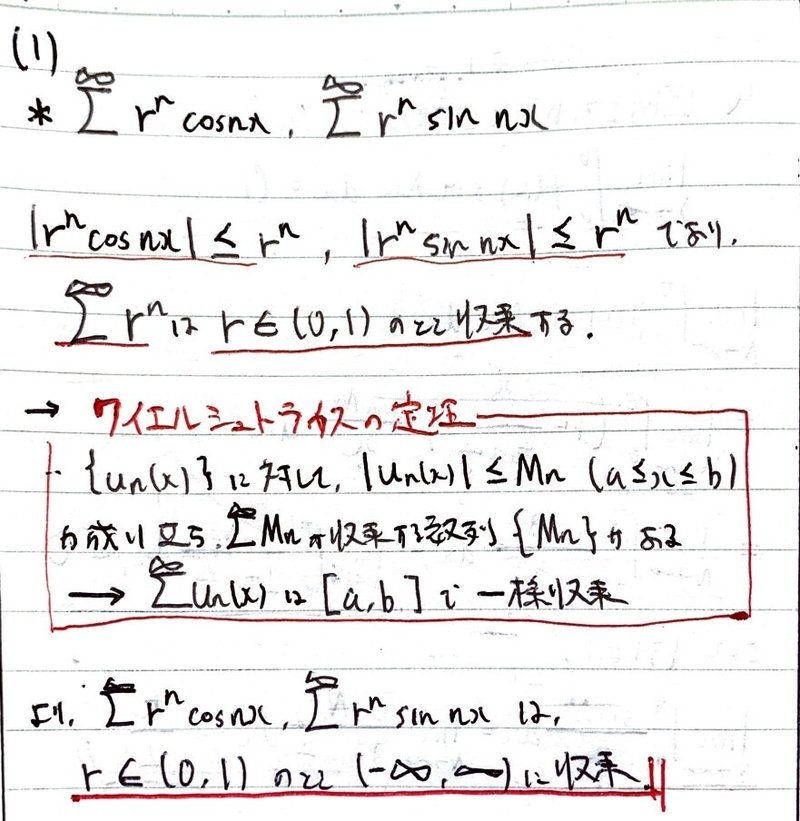 (1)
* ∑^∞ rⁿ cosnx, ∑^∞ rⁿ sin nx
|rⁿ cos nx| ≤ rⁿ, |rⁿ sin nx| ≤ rⁿ であり,
∑^∞ rⁿ は r ∈ (0,1) のとき収束する.
→ ワイエルシュトラウスの定理
・{un(x)} に対して, |un(x)| ≤ Mn (a≤x≤b)
が成り立ち, ∑^∞ Mn が収束する数列 {Mn} がある
→ ∑^∞ un(x) は [a,b] で一様収束
より, ∑^∞ rⁿ cosnx, ∑^∞ rⁿ sin nx は,
r ∈ (0,1) のとき (-∞,∞) に収束.